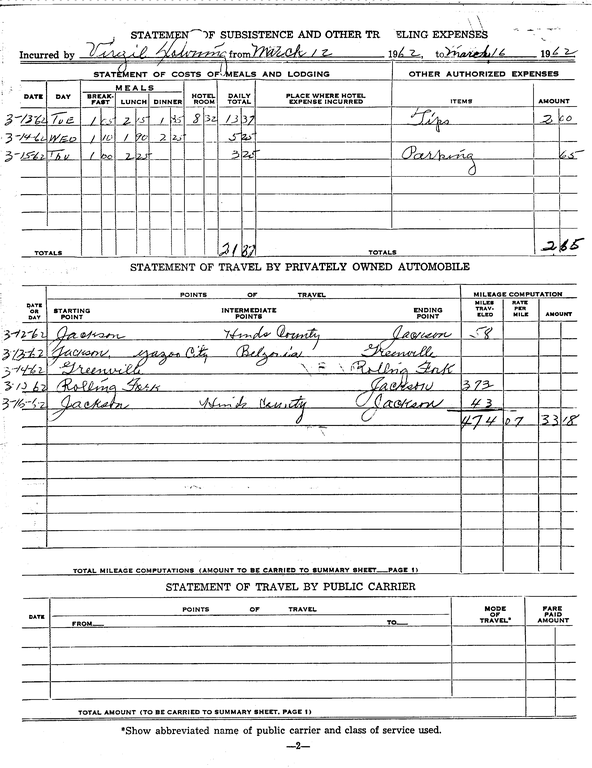 STATEMENT OF SUBSISTENCE AND OTHER TR ELING EXPENSES
Incurred by Virgil from March 12 1962, to March 16 1962
STATEMENT OF COSTS OF MEALS AND LODGING OTHER AUTHORIZED EXPENSES
MEALS
DATE DAY BREAK-FAST LUNCH DINNER HOTEL ROOM DAILY TOTAL PLACE WHERE HOTEL EXPENSE INCURRED ITEMS AMOUNT
3-13-62 TUE 1 05 2 15 1 85 8 32 13 37 Tips 2 00
3-14-62 WED 1 10 1 90 2 25 5 25
3-15-62 Thu 1 00 2 25 3 25 Parking 65
TOTALS 21 87 TOTALS 2 65
STATEMENT OF TRAVEL BY PRIVATELY OWNED AUTOMOBILE
POINTS OF TRAVEL MILEAGE COMPUTATION
DATE OR DAY STARTING POINT INTERMEDIATE POINTS ENDING POINT MILES TRAV-ELED RATE PER MILE AMOUNT
3-12-62 Jackson Hinds County Jackson 58
3-13-62 Jackson Yazoo City Belzonia Greenville
3-14-62 Greenville Rolling Fork
Rolling Fork Jackson 373
Jackson Hinds County Jackson 43
474 07 33 18
TOTAL MILEAGE COMPUTATIONS (AMOUNT TO BE CARRIED TO SUMMARY SHEET—PAGE 1)
STATEMENT OF TRAVEL BY PUBLIC CARRIER
DATE POINTS OF TRAVEL MODE OF TRAVEL* FARE PAID AMOUNT
FROM— TO—
TOTAL AMOUNT (TO BE CARRIED TO SUMMARY SHEET, PAGE 1)
*Show abbreviated name of public carrier and class of service used.
—2—